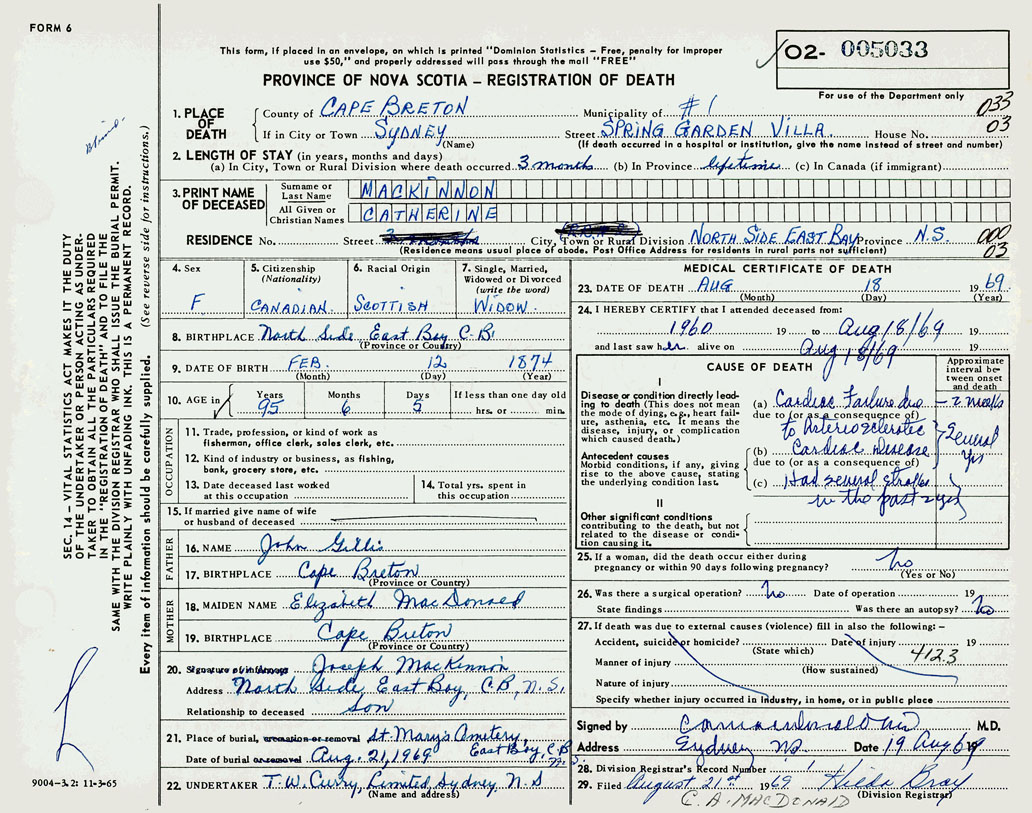 FORM 6
This form, if placed in an envelope, on which is printed "Dominion Statistics – Free, penalty for improper
use $50," and properly addressed will pass through the mail "FREE"
PROVINCE OF NOVA SCOTIA – REGISTRATION OF DEATH
02- 005033
For use of the Department only
1. PLACE OF DEATH County of CAPE BRETON Municipality of #1 033
If in City or Town SYDNEY (Name) Street SPRING GARDEN VILLA House No. 03
(If death occurred in a hospital or institution, give the name instead of street and number)
2. LENGTH OF STAY (in years, months and days)
(a) In City, Town or Rural Division where death occurred 3 month (b) In Province lifetime (c) In Canada (if immigrant)
3. PRINT NAME OF DECEASED Surname or Last Name MACKINNON
All Given or Christian Names CATHERINE
RESIDENCE No. Street City, Town or Rural Division NORTH SIDE EAST BAY Province N.S. 000
(Residence means usual place of abode. Post Office Address for residents in rural parts not sufficient) 03
4. Sex F
5. Citizenship (Nationality) CANADIAN
6. Racial Origin SCOTTISH
7. Single, Married, Widowed or Divorced (write the word) WIDOW
8. BIRTHPLACE North Side East Bay C.B.
(Province or Country)
9. DATE OF BIRTH FEB. 12 1874
(Month) (Day) (Year)
10. AGE in Years 95 Months 6 Days 5 If less than one day old hrs. or min.
OCCUPATION
11. Trade, profession, or kind of work as
fisherman, office clerk, sales clerk, etc.
12. Kind of industry or business, as fishing,
bank, grocery store, etc.
13. Date deceased last worked at this occupation
14. Total yrs. spent in this occupation
15. If married give name of wife
or husband of deceased
FATHER
16. NAME John Gillis
17. BIRTHPLACE Cape Breton
(Province or Country)
MOTHER
18. MAIDEN NAME Elizabeth MacDonald
19. BIRTHPLACE Cape Breton
(Province or Country)
20. Signature of informant Joseph MacKinnon
Address North Side East Bay, C.B., N.S.
Relationship to deceased Son
21. Place of burial, cremation or removal St Mary's Cemetery,
East Bay, C.B. N.S.
Date of burial or removal Aug. 21, 1969
22. UNDERTAKER T.W. Curry, Limited Sydney, N.S
(Name and address)
MEDICAL CERTIFICATE OF DEATH
23. DATE OF DEATH AUG 18 1969.
(Month) (Day) (Year)
24. I HEREBY CERTIFY that I attended deceased from:
1960 19 to Aug 18/69 19
and last saw her alive on Aug 18/69 19
CAUSE OF DEATH
Approximate interval between onset and death
I
Disease or condition directly leading to death (This does not mean the mode of dying, e.g., heart failure, asthenia, etc. It means the disease, injury, or complication which caused death.)
(a) Cardiac Failure due – 2 weeks
due to (or as a consequence of)
to Arteriosclerotic
Antecedent causes
Morbid conditions, if any, giving rise to the above cause, stating the underlying condition last.
(b) Cardiac Disease Several yrs
due to (or as a consequence of)
(c) Had several strokes
in the past 2 yrs
II
Other significant conditions
contributing to the death, but not related to the disease or condition causing it.
25. If a woman, did the death occur either during
pregnancy or within 90 days following pregnancy? No
(Yes or No)
26. Was there a surgical operation? No Date of operation 19
State findings Was there an autopsy? No
27. If death was due to external causes (violence) fill in also the following:–
Accident, suicide or homicide? Date of injury 19
(State which)
Manner of injury 412.3
(How sustained)
Nature of injury
Specify whether injury occurred in industry, in home, or in public place
Signed by M.D.
Address Sydney NS Date 19 Aug 69 19
28. Division Registrar's Record Number 1
29. Filed August 21st 1969 Hilda Bray
C. A. MACDONALD (Division Registrar)
SEC. 14 – VITAL STATISTICS ACT MAKES IT THE DUTY
OF THE UNDERTAKER OR PERSON ACTING AS UNDER-
TAKER TO OBTAIN ALL THE PARTICULARS REQUIRED
IN THE "REGISTRATION OF DEATH" AND TO FILE THE
SAME WITH THE DIVISION REGISTRAR WHO SHALL ISSUE THE BURIAL PERMIT.
WRITE PLAINLY WITH UNFADING INK. THIS IS A PERMANENT RECORD.
Every item of information should be carefully supplied. (See reverse side for instructions.)
9004-3.2: 11-3-65